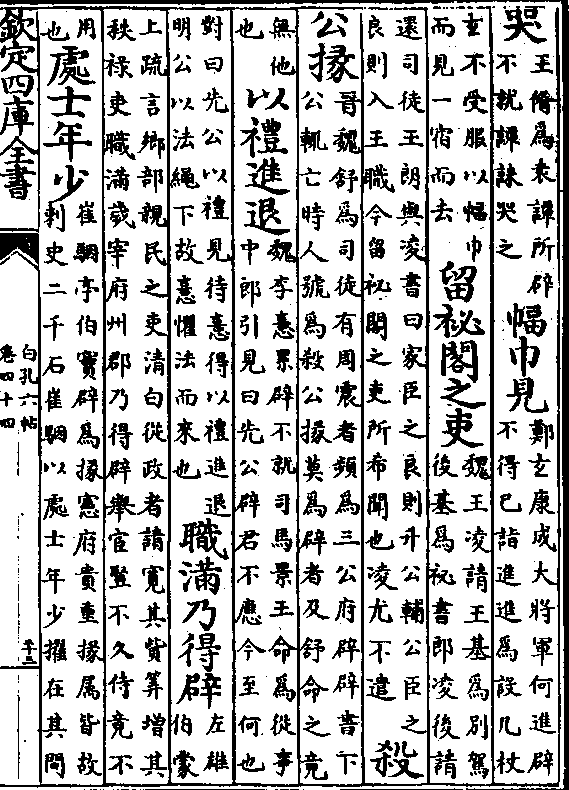 哭
王脩為袁譚所辟
不就譚誅哭之
幅巾見
鄭玄康成大將軍何進辟
不得已詣進進為設几杖
玄不受服以幅巾
而見一宿而去
留祕閣之吏
魏王凌請王基為別駕
後基為祕書郎凌後請
還司徒王朗與凌書曰家臣之良則升公輔公臣之
良則入王職今留祕閣之吏所希聞也凌尤不遣
殺
公掾
晉魏舒為司徒有周震者頻為三公府辟辟書下
公輒亡時人號為殺公掾莫為辟者及舒命之竟
無他
也
以禮進退
魏李憙累辟不就司馬景王命為從事
中郎引見曰先公辟君不應今至何也
對曰先公以禮見待憙得以禮進退
明公以法繩下故憙懼法而來也
職滿乃得辟
左雄
伯蒙
上疏言鄉部親民之吏清白從政者請寬其貲筭增其
秩祿吏職滿歲宰府州郡乃得辟舉官豎不久侍竟不
用
也
處士年少
崔駰亭伯竇辟為掾憲府貴重掾属皆故
刺史二千石崔駰以處士年少擢在其間
欽定四庫全書
白孔六帖
卷四十四